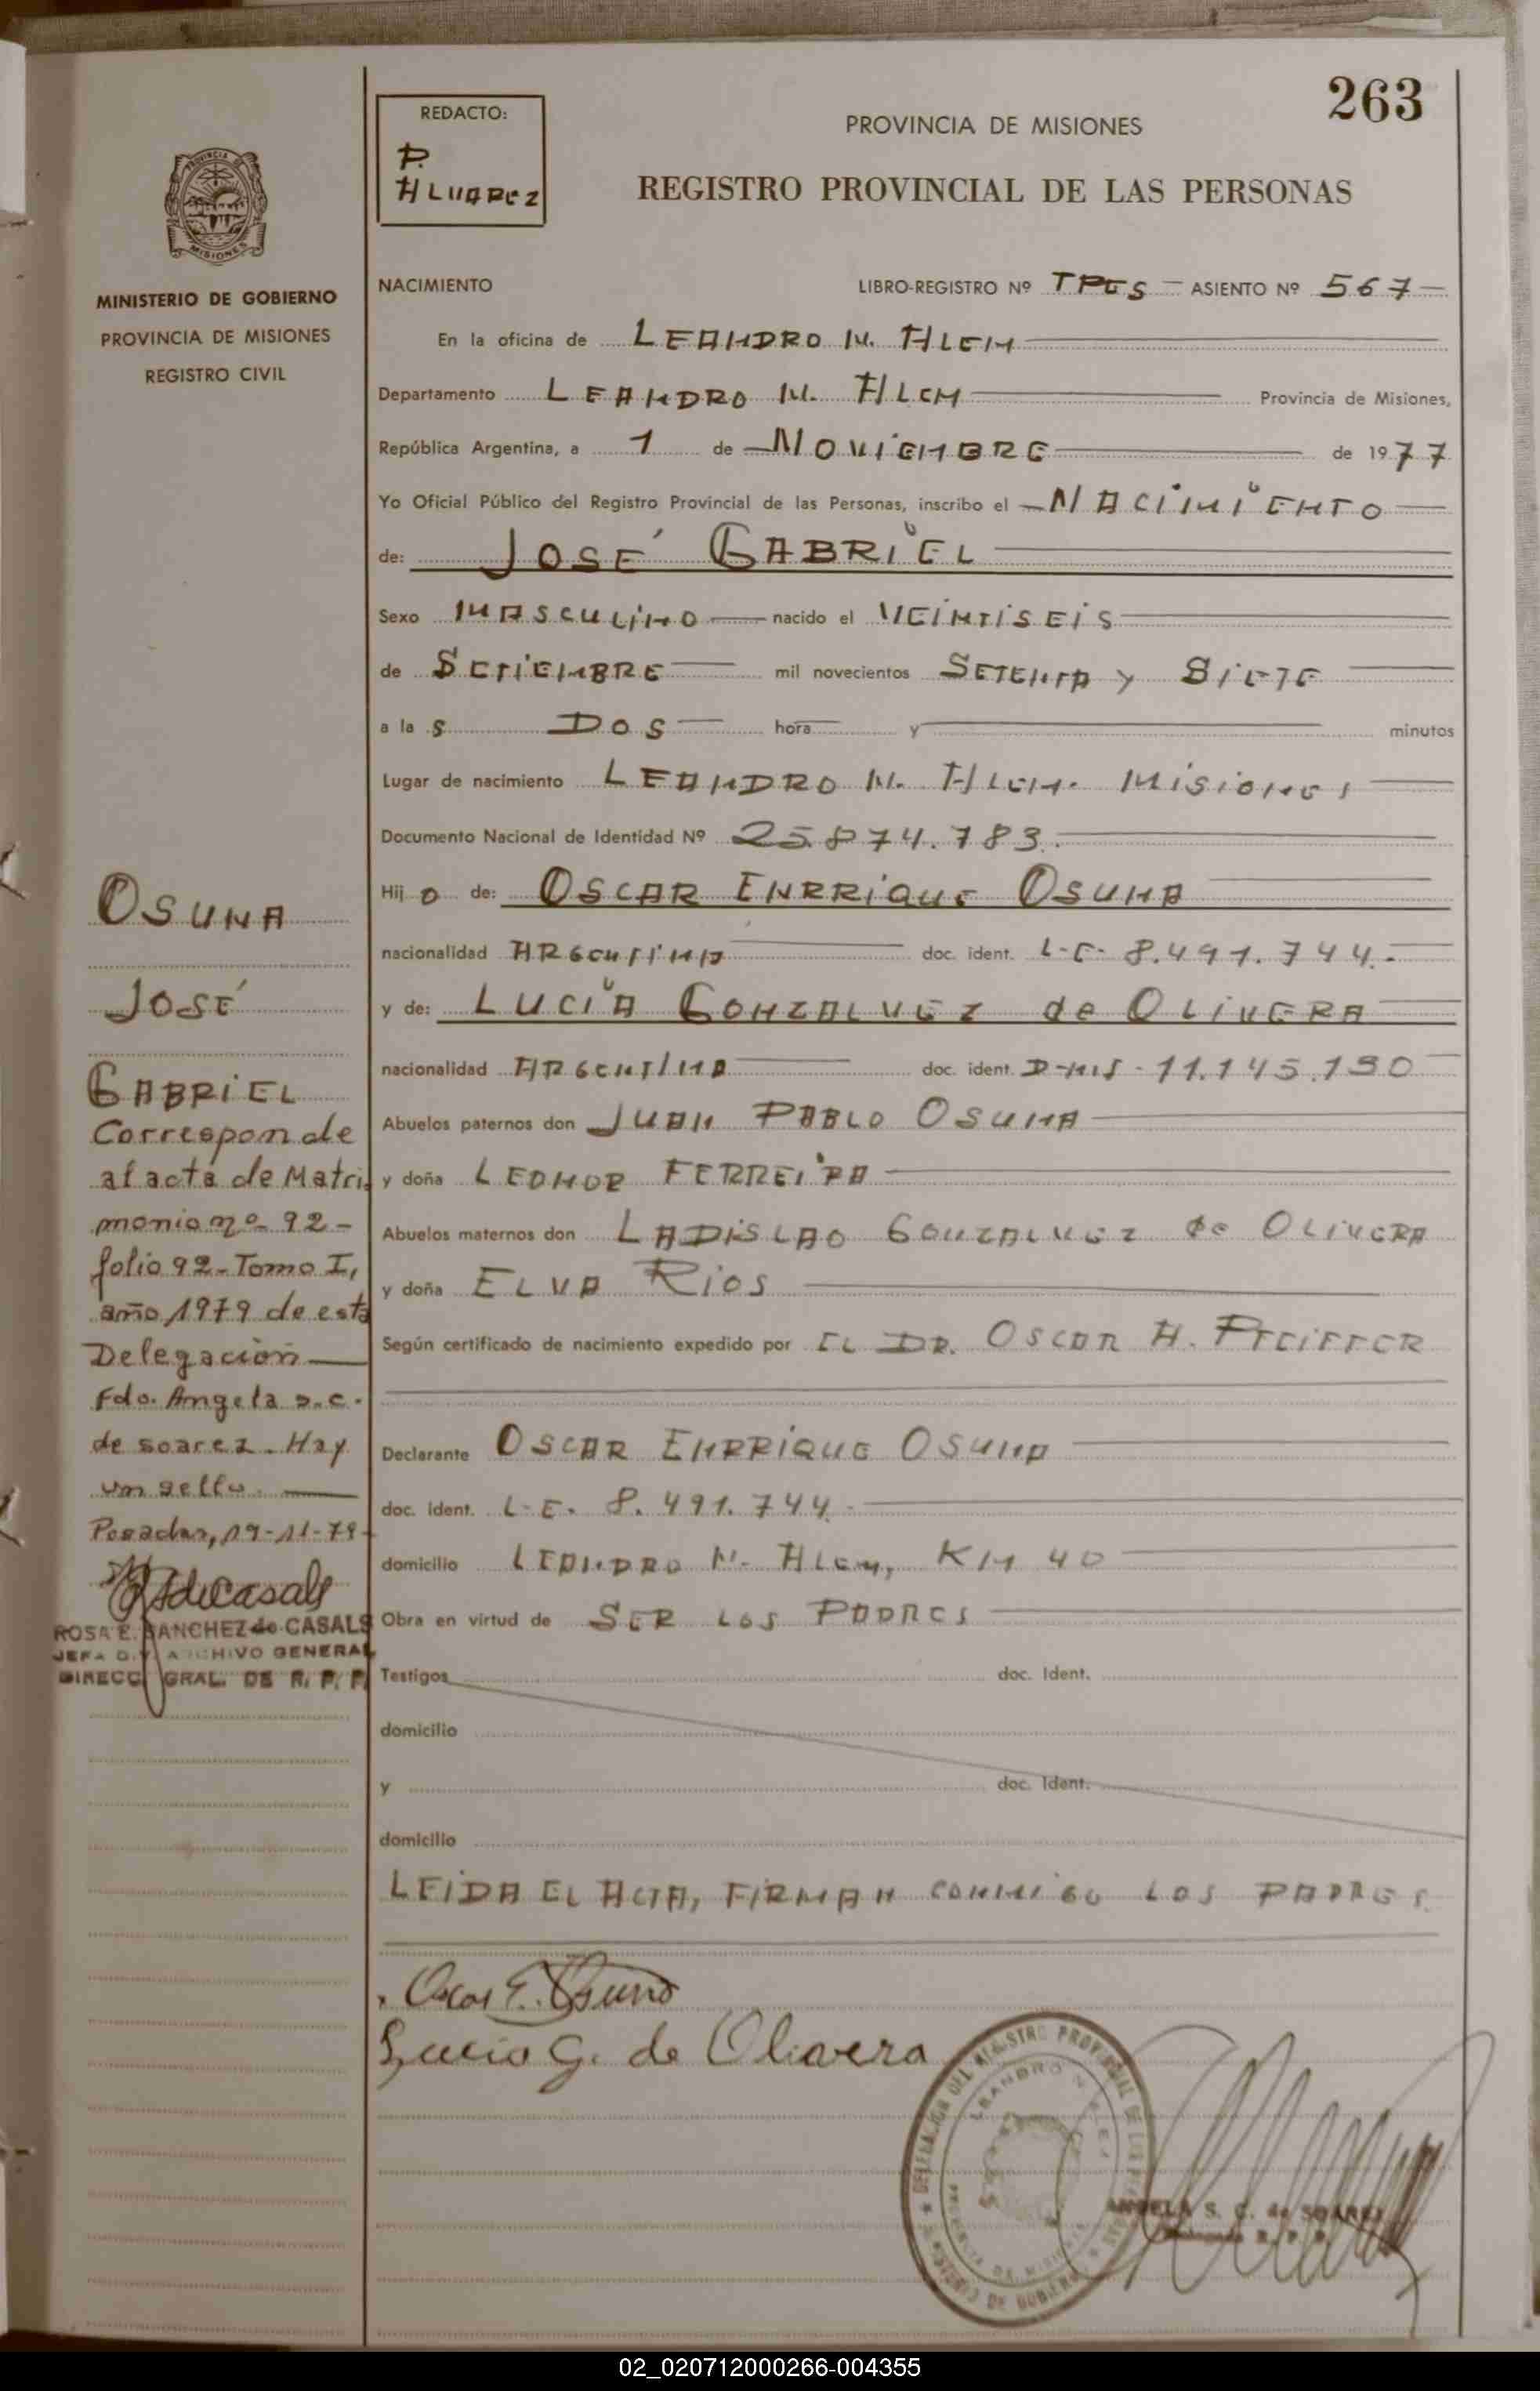 263
REDACTO:
P.
ALVAREZ
PROVINCIA DE MISIONES
REGISTRO PROVINCIAL DE LAS PERSONAS
PROVINCIA DE
MISIONES
MINISTERIO DE GOBIERNO
PROVINCIA DE MISIONES
REGISTRO CIVIL
NACIMIENTO LIBRO-REGISTRO Nº TRES - ASIENTO Nº 567-
En la oficina de LEANDRO N. ALEM
Departamento LEANDRO N. ALEM Provincia de Misiones,
República Argentina, a 1 de NOVIEMBRE de 1977
Yo Oficial Público del Registro Provincial de las Personas, inscribo el NACIMIENTO
de: JOSÉ GABRIEL
Sexo MASCULINO nacido el VEINTISEIS
de SETIEMBRE mil novecientos SETENTA Y SIETE
a la s DOS hora y minutos
Lugar de nacimiento LEANDRO N. ALEM. MISIONES
Documento Nacional de Identidad Nº 25.874.783.
Hij o de: OSCAR ENRRIQUE OSUNA
nacionalidad ARGENTINA doc. ident. L-E- 8.491.744.-
y de: LUCIA GONZALVEZ de OLIVERA
nacionalidad ARGENTINA doc. ident. D-NIS - 11.145.130
Abuelos paternos don JUAN PABLO OSUNA
y doña LEONOR FERREIRA
Abuelos maternos don LADISLAO GONZALVEZ de OLIVERA
y doña ELVA RIOS
Según certificado de nacimiento expedido por EL DR. OSCAR H. PFEIFFER
Declarante OSCAR ENRRIQUE OSUNA
doc. ident. L-E. 8.491.744.-
domicilio LEANDRO N. ALEM, KM 40
Obra en virtud de SER LOS PADRES
Testigos doc. Ident.
domicilio
y doc. Ident.
domicilio
LEIDA EL ACTA, FIRMAN CONMIGO LOS PADRES.
Oscar E. Osuna
Lucia G. de Olivera
DELEGACION DEL REGISTRO PROVINCIAL DE LAS PERSONAS
LEANDRO N. ALEM
PROVINCIA DE MISIONES
MINISTERIO DE GOBIERNO
ANGELA S. C. de SOAREZ
OSUNA
JOSÉ
GABRIEL
Corresponde
al acta de Matri
monio nº 92-
folio 92-Tomo I,
año 1979 de esta
Delegación
Fdo. Angela S.C.
de soarez. Hay
un sello.
Posadas, 19-11-79-
ROSA E. SANCHEZ de CASALS
JEFA DIV. ARCHIVO GENERAL
DIRECC. GRAL. DE R. P. P.
02_020712000266-004355